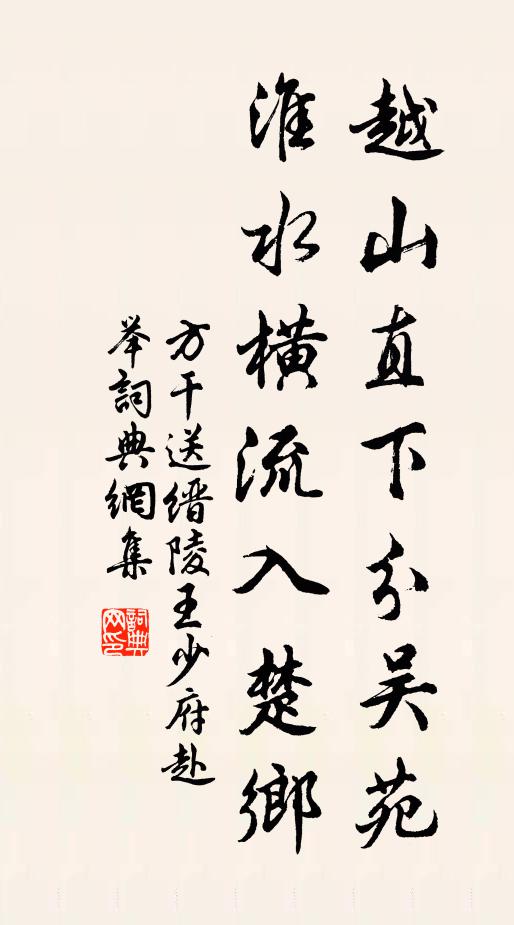 越山直下分吴苑
淮水橫流入楚鄉
方干送缙陵王少府赴
举詞典網集
詞典
网印